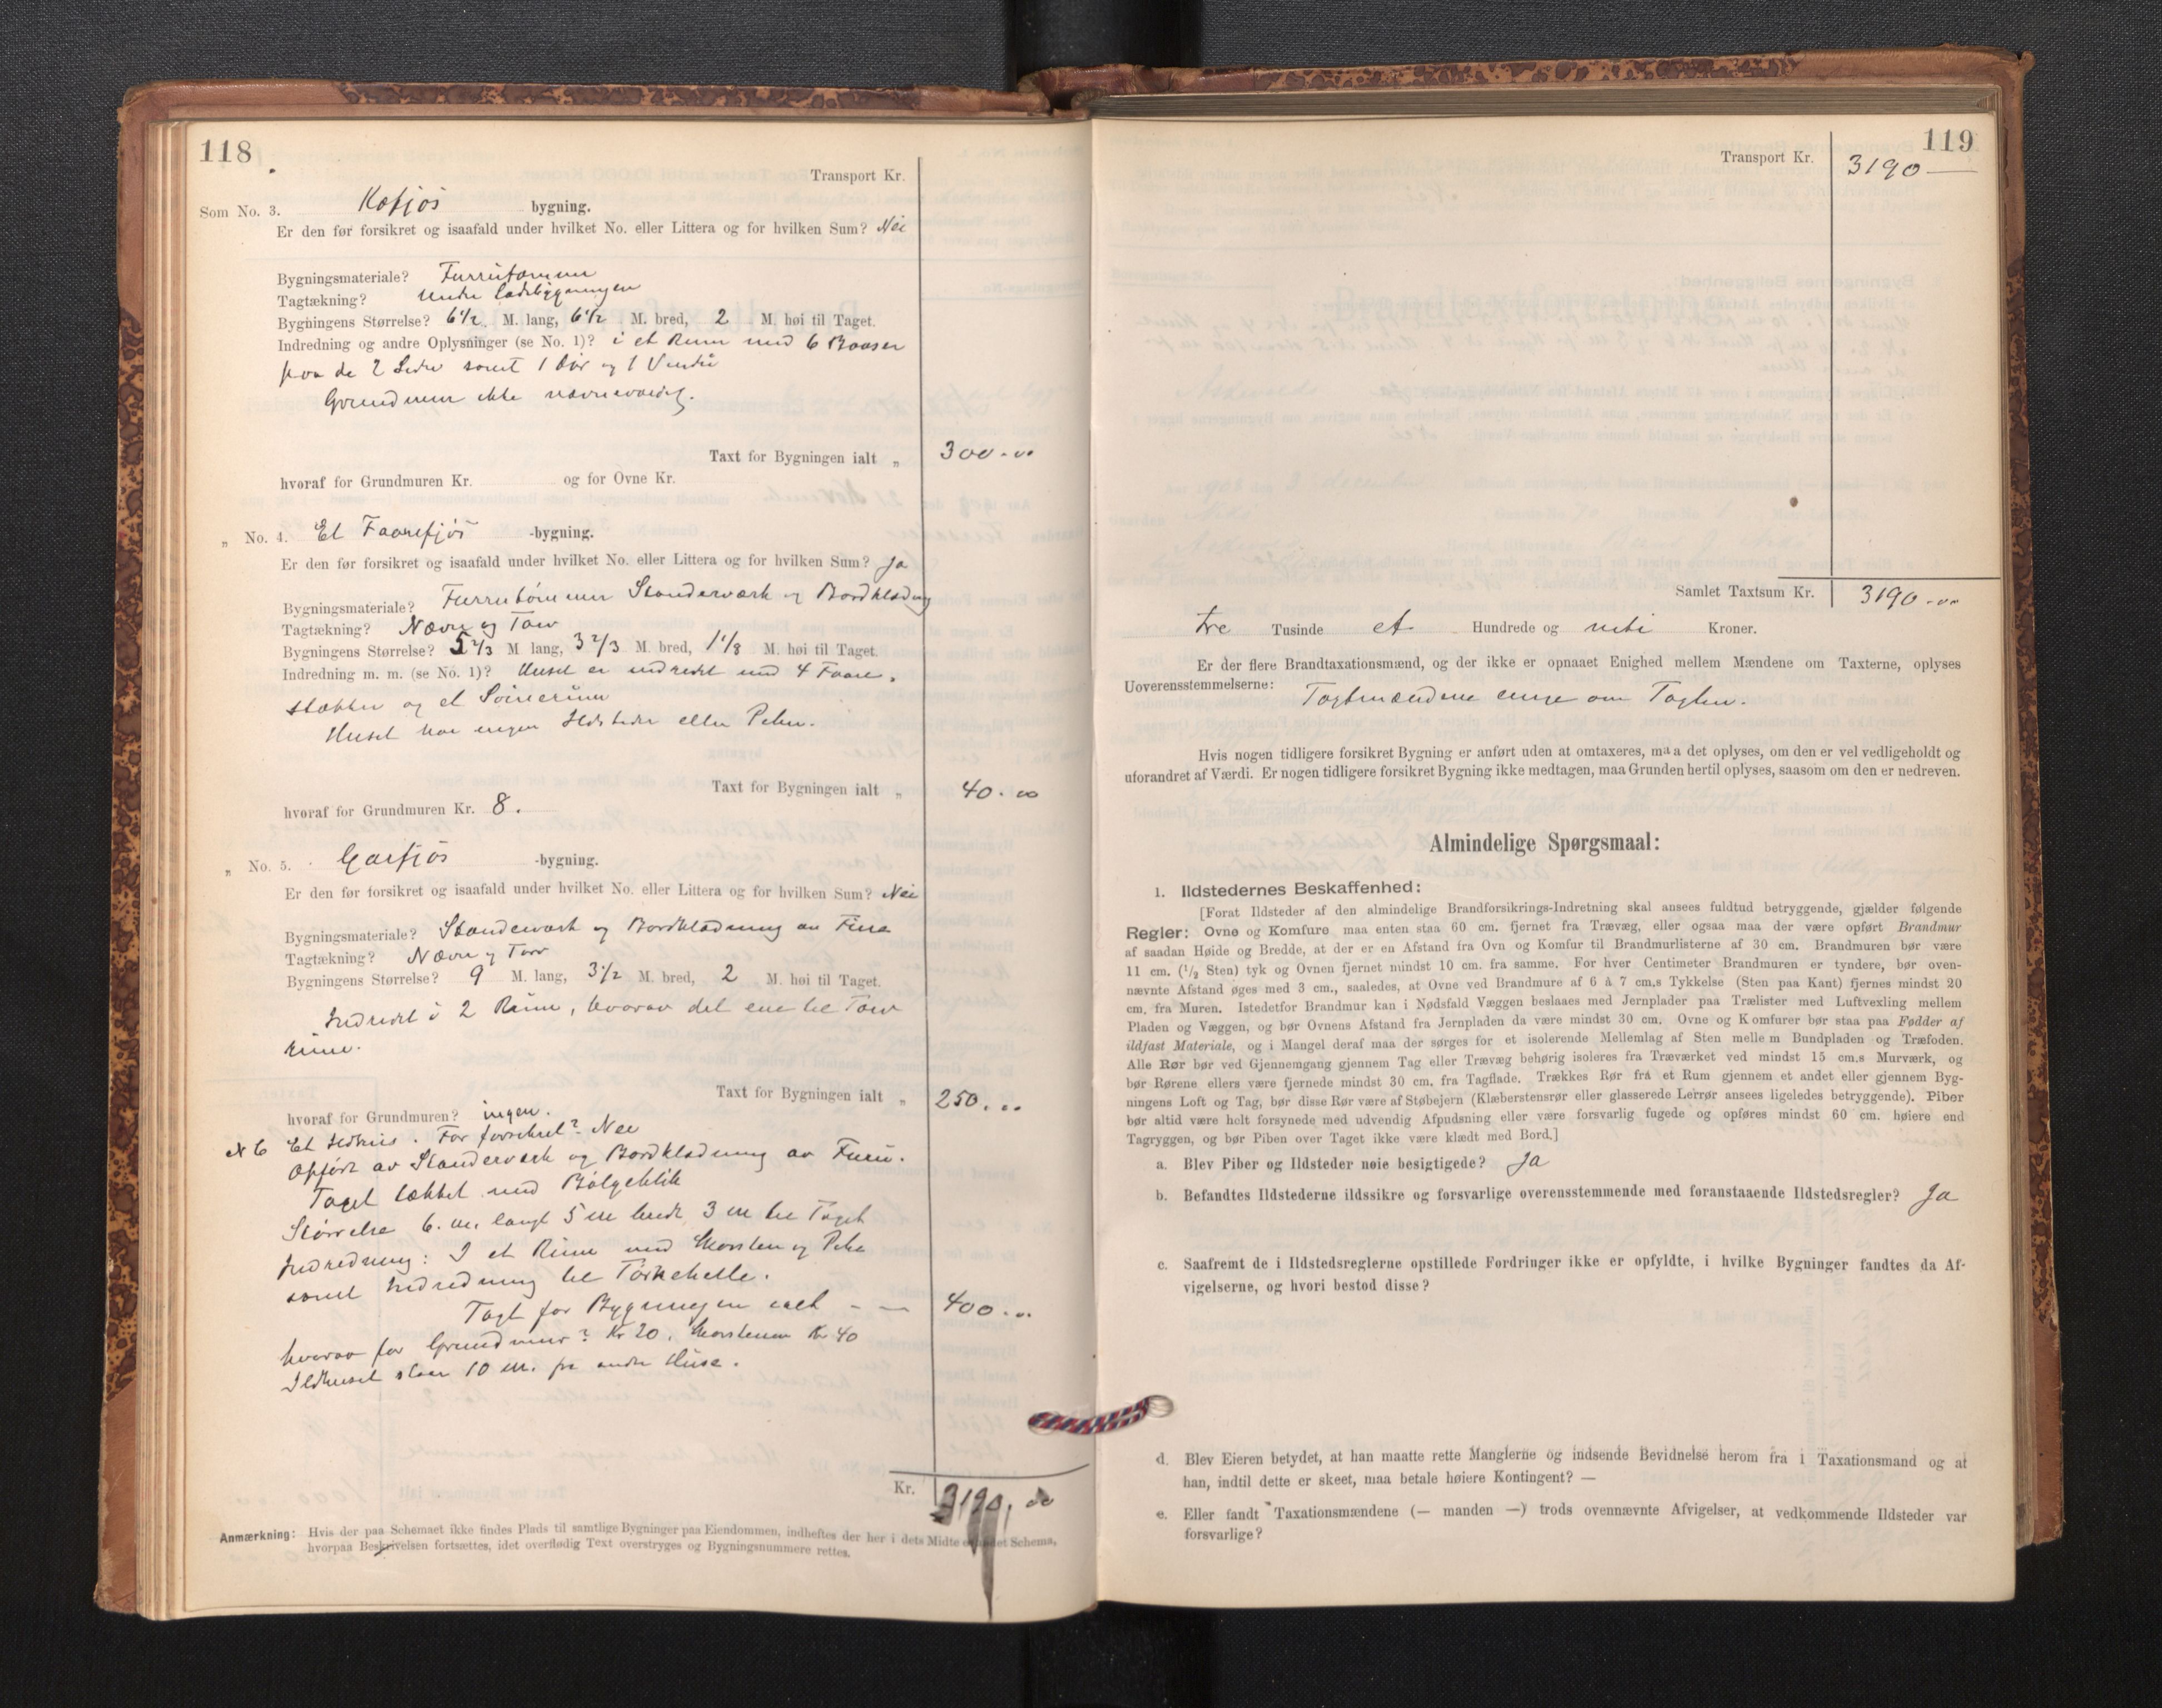 118
Transport Kr.
Som No. 3. Kofjøs bygning.
Er den før forsikret og isaafald under hvilket No. eller Littera og for hvilken Sum? Nei
Bygningsmateriale? Furrutømmer
Tagtækning? under ladebygningen
Bygningens Størrelse? 6 1/2 M. lang, 6 1/2 M. bred, 2 M. høi til Taget.
Indredning og andre Oplysninger (se No. 1)? i et Rum med 6 Baaser
paa de 2 Sider samt 1 Dør og 1 Vindu
Grundmur ikke nævneværdig.
Taxt for Bygningen ialt „ 300.00
hvoraf for Grundmuren Kr. og for Ovne Kr.
„ No. 4. Et Faarefjøs -bygning.
Er den før forsikret og isaafald under hvilket No. eller Littera og for hvilken Sum? Ja
Bygningsmateriale? Furrutømmer Standerværk og Bordklædning
Tagtækning? Næver og Torv
Bygningens Størrelse? 5 2/3 M. lang, 3 2/3 M. bred, 1 1/8 M. høi til Taget.
Indredning m. m. (se No. 1)? Huset er indredet med 4 Faare-
stækker og et
Huset har ingen Ildsteder eller Piber.
Taxt for Bygningen ialt „ 40.00
hvoraf for Grundmuren Kr. 8.
„ No. 5. -bygning.
Er den før forsikret og isaafald under hvilket No. eller Littera og for hvilken Sum? Nei
Bygningsmateriale? Standerværk og Bordklædning av Furu
Tagtækning? Næver og Torv
Bygningens Størrelse? 9 M. lang, 3 1/2 M. bred, 2 M. høi til Taget.
Indredet i 2 Rum, hvorav det ene til Torv
rum.
Taxt for Bygningen ialt „ 250.00
hvoraf for Grundmuren? ingen.
N 6 Et Ildhus. Før forsikret? Nei
Opført av Standerverk og Bordklædning av Furu.
Taget tækket med Bølgeblik
Størrelse 6. m. langt 5 m bredt 3 m til Taget
Indredning: I et Rum med Skorsten og Pibe
samt Indredning til Tørkehelle.
Taxt for Bygningen ialt - — 400.00
hvorav for Grundmur? Kr 20. Skorstenen Kr 40
Ildhuset staar 10 m. fra andre Huse.
Kr. 3190,00
Anmærkning: Hvis der paa Schemaet ikke findes Plads til samtlige Bygninger paa Eiendommen, indheftes der her i dets Midte et andet Schema,
hvorpaa Beskrivelsen fortsættes, idet overflødig Text overstryges og Bygningsnummere rettes.
119
Transport Kr. 3190 —
Samlet Taxtsum Kr. 3190.00
tre Tusinde et Hundrede og niti Kroner.
Er der flere Brandtaxationsmænd, og der ikke er opnaaet Enighed mellem Mændene om Taxterne, oplyses
Uoverensstemmelserne: Taxtmændene enige om Taxten.
Hvis nogen tidligere forsikret Bygning er anført uden at omtaxeres, maa det oplyses, om den er vel vedligeholdt og
uforandret af Værdi. Er nogen tidligere forsikret Bygning ikke medtagen, maa Grunden hertil oplyses, saasom om den er nedreven.
Almindelige Spørgsmaal:
1. Ildstedernes Beskaffenhed:
[Forat Ildsteder af den almindelige Brandforsikrings-Indretning skal ansees fuldtud betryggende, gjælder følgende
Regler: Ovne og Komfure maa enten staa 60 cm. fjernet fra Trævæg, eller ogsaa maa der være opført Brandmur
af saadan Høide og Bredde, at der er en Afstand fra Ovn og Komfur til Brandmurlisterne af 30 cm. Brandmuren bør være
11 cm. (1/2 Sten) tyk og Ovnen fjernet mindst 10 cm. fra samme. For hver Centimeter Brandmuren er tyndere, bør oven-
nævnte Afstand øges med 3 cm., saaledes, at Ovne ved Brandmure af 6 à 7 cm.s Tykkelse (Sten paa Kant) fjernes mindst 20
cm. fra Muren. Istedetfor Brandmur kan i Nødsfald Væggen beslaaes med Jernplader paa Trælister med Luftvexling mellem
Pladen og Væggen, og bør Ovnens Afstand fra Jernpladen da være mindst 30 cm. Ovne og Komfurer bør staa paa Fødder af
ildfast Materiale, og i Mangel deraf maa der sørges for et isolerende Mellemlag af Sten mellem Bundpladen og Træfoden.
Alle Rør bør ved Gjennemgang gjennem Tag eller Trævæg behørig isoleres fra Træværket ved mindst 15 cm.s Murværk, og
bør Rørene ellers være fjernede mindst 30 cm. fra Tagflade. Trækkes Rør fra et Rum gjennem et andet eller gjennem Byg-
ningens Loft og Tag, bør disse Rør være af Støbejern (Klæberstensrør eller glasserede Lerrør ansees ligeledes betryggende). Piber
bør altid være holt forsynede med udvendig Afpudsning eller være forsvarlig fugede og opføres mindst 60 cm. høiere end
Tagryggen, og bør Piben over Taget ikke være klædt med Bord.]
a. Blev Piber og Ildsteder nøie besigtigede? Ja
b. Befandtes Ildstederne ildssikre og forsvarlige overensstemmende med foranstaaende Ildstedsregler? Ja
c. Saafremt de i Ildstedsreglerne opstillede Fordringer ikke er opfyldte, i hvilke Bygninger fandtes da Af-
vigelserne, og hvori bestod disse?
d. Blev Eieren betydet, at han maatte rette Manglerne og indsende Bevidnelse herom fra 1 Taxationsmand og at
han, indtil dette er skeet, maa betale høiere Kontingent? —
e. Eller fandt Taxationsmændene (— manden —) trods ovennævnte Afvigelser, at vedkommende Ildsteder var
forsvarlige?